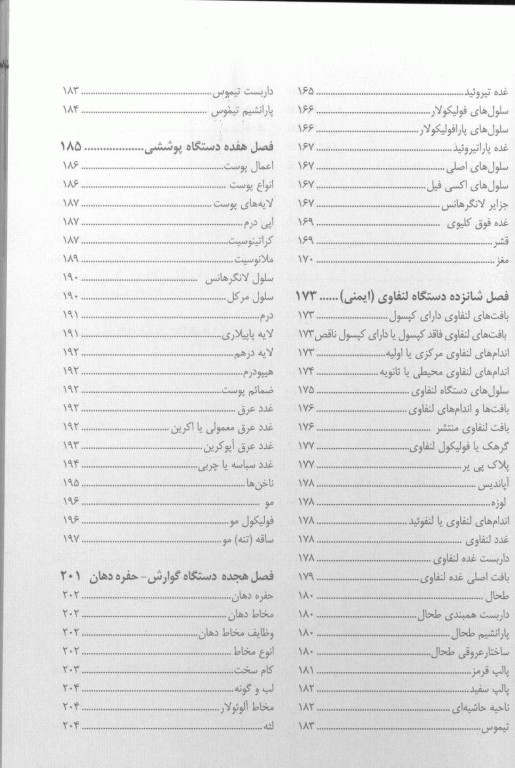 غده تیروئید ۱۶۵
سلول‌های فولیکولار ۱۶۶
سلول‌های پارافولیکولار ۱۶۶
غده پاراتیروئید ۱۶۷
سلول‌های اصلی ۱۶۷
سلول‌های اکسی فیل ۱۶۷
جزایر لانگرهانس ۱۶۷
غده فوق کلیوی ۱۶۹
قشر ۱۶۹
مغز ۱۷۰
فصل شانزده دستگاه لنفاوی (ایمنی) ۱۷۳
بافت‌های لنفاوی دارای کپسول ۱۷۳
بافت‌های لنفاوی فاقد کپسول یا دارای کپسول ناقص ۱۷۳
اندام‌های لنفاوی مرکزی یا اولیه ۱۷۳
اندام‌های لنفاوی محیطی یا ثانویه ۱۷۴
سلول‌های دستگاه لنفاوی ۱۷۵
بافت‌ها و اندام‌های لنفاوی ۱۷۶
بافت لنفاوی منتشر ۱۷۶
گرهک یا فولیکول لنفاوی ۱۷۷
پلاک پی یر ۱۷۷
آپاندیس ۱۷۸
لوزه ۱۷۸
اندام‌های لنفاوی یا لنفوئید ۱۷۸
غدد لنفاوی ۱۷۸
داربست غده لنفاوی ۱۷۸
بافت اصلی غده لنفاوی ۱۷۹
طحال ۱۸۰
داربست همبندی طحال ۱۸۰
پارانشیم طحال ۱۸۰
ساختارعروقی طحال ۱۸۰
پالپ قرمز ۱۸۱
پالپ سفید ۱۸۲
ناحیه حاشیه‌ای ۱۸۲
تیموس ۱۸۳
داربست تیموس ۱۸۳
پارانشیم تیموس ۱۸۴
فصل هفده دستگاه پوششی ۱۸۵
اعمال پوست ۱۸۶
انواع پوست ۱۸۶
لایه‌های پوست ۱۸۷
اپی درم ۱۸۷
کراتینوسیت ۱۸۷
ملانوسیت ۱۸۹
سلول لانگرهانس ۱۹۰
سلول مرکل ۱۹۰
درم ۱۹۱
لایه پاپیلاری ۱۹۱
لایه درهم ۱۹۲
هیپودرم ۱۹۲
ضمائم پوست ۱۹۲
غدد عرق ۱۹۲
غدد عرق معمولی یا اکرین ۱۹۲
غدد عرق آپوکرین ۱۹۳
غدد سباسه یا چربی ۱۹۴
ناخن‌ها ۱۹۵
مو ۱۹۶
فولیکول مو ۱۹۶
ساقه (تنه) مو ۱۹۷
فصل هجده دستگاه گوارش- حفره دهان ۲۰۱
حفره دهان ۲۰۲
مخاط دهان ۲۰۲
وظایف مخاط دهان ۲۰۲
انوع مخاط ۲۰۲
کام سخت ۲۰۳
لب و گونه ۲۰۴
مخاط آلوئولار ۲۰۴
لثه ۲۰۴